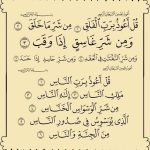 قُلْ أَعُوذُ بِرَبِّ الْفَلَقِ مِن شَرِّ مَا خَلَقَ
وَمِن شَرِّ غَاسِقٍ إِذَا وَقَبَ
وَمِن شَرِّ حَاسِدٍ إِذَا حَسَدَ
قُلْ أَعُوذُ بِرَبِّ النَّاسِ
مَلِكِ النَّاسِ إِلَٰهِ النَّاسِ
مِن شَرِّ الْوَسْوَاسِ الْخَنَّاسِ
الَّذِي يُوَسْوِسُ فِي صُدُورِ النَّاسِ
مِنَ الْجِنَّةِ وَالنَّاسِ